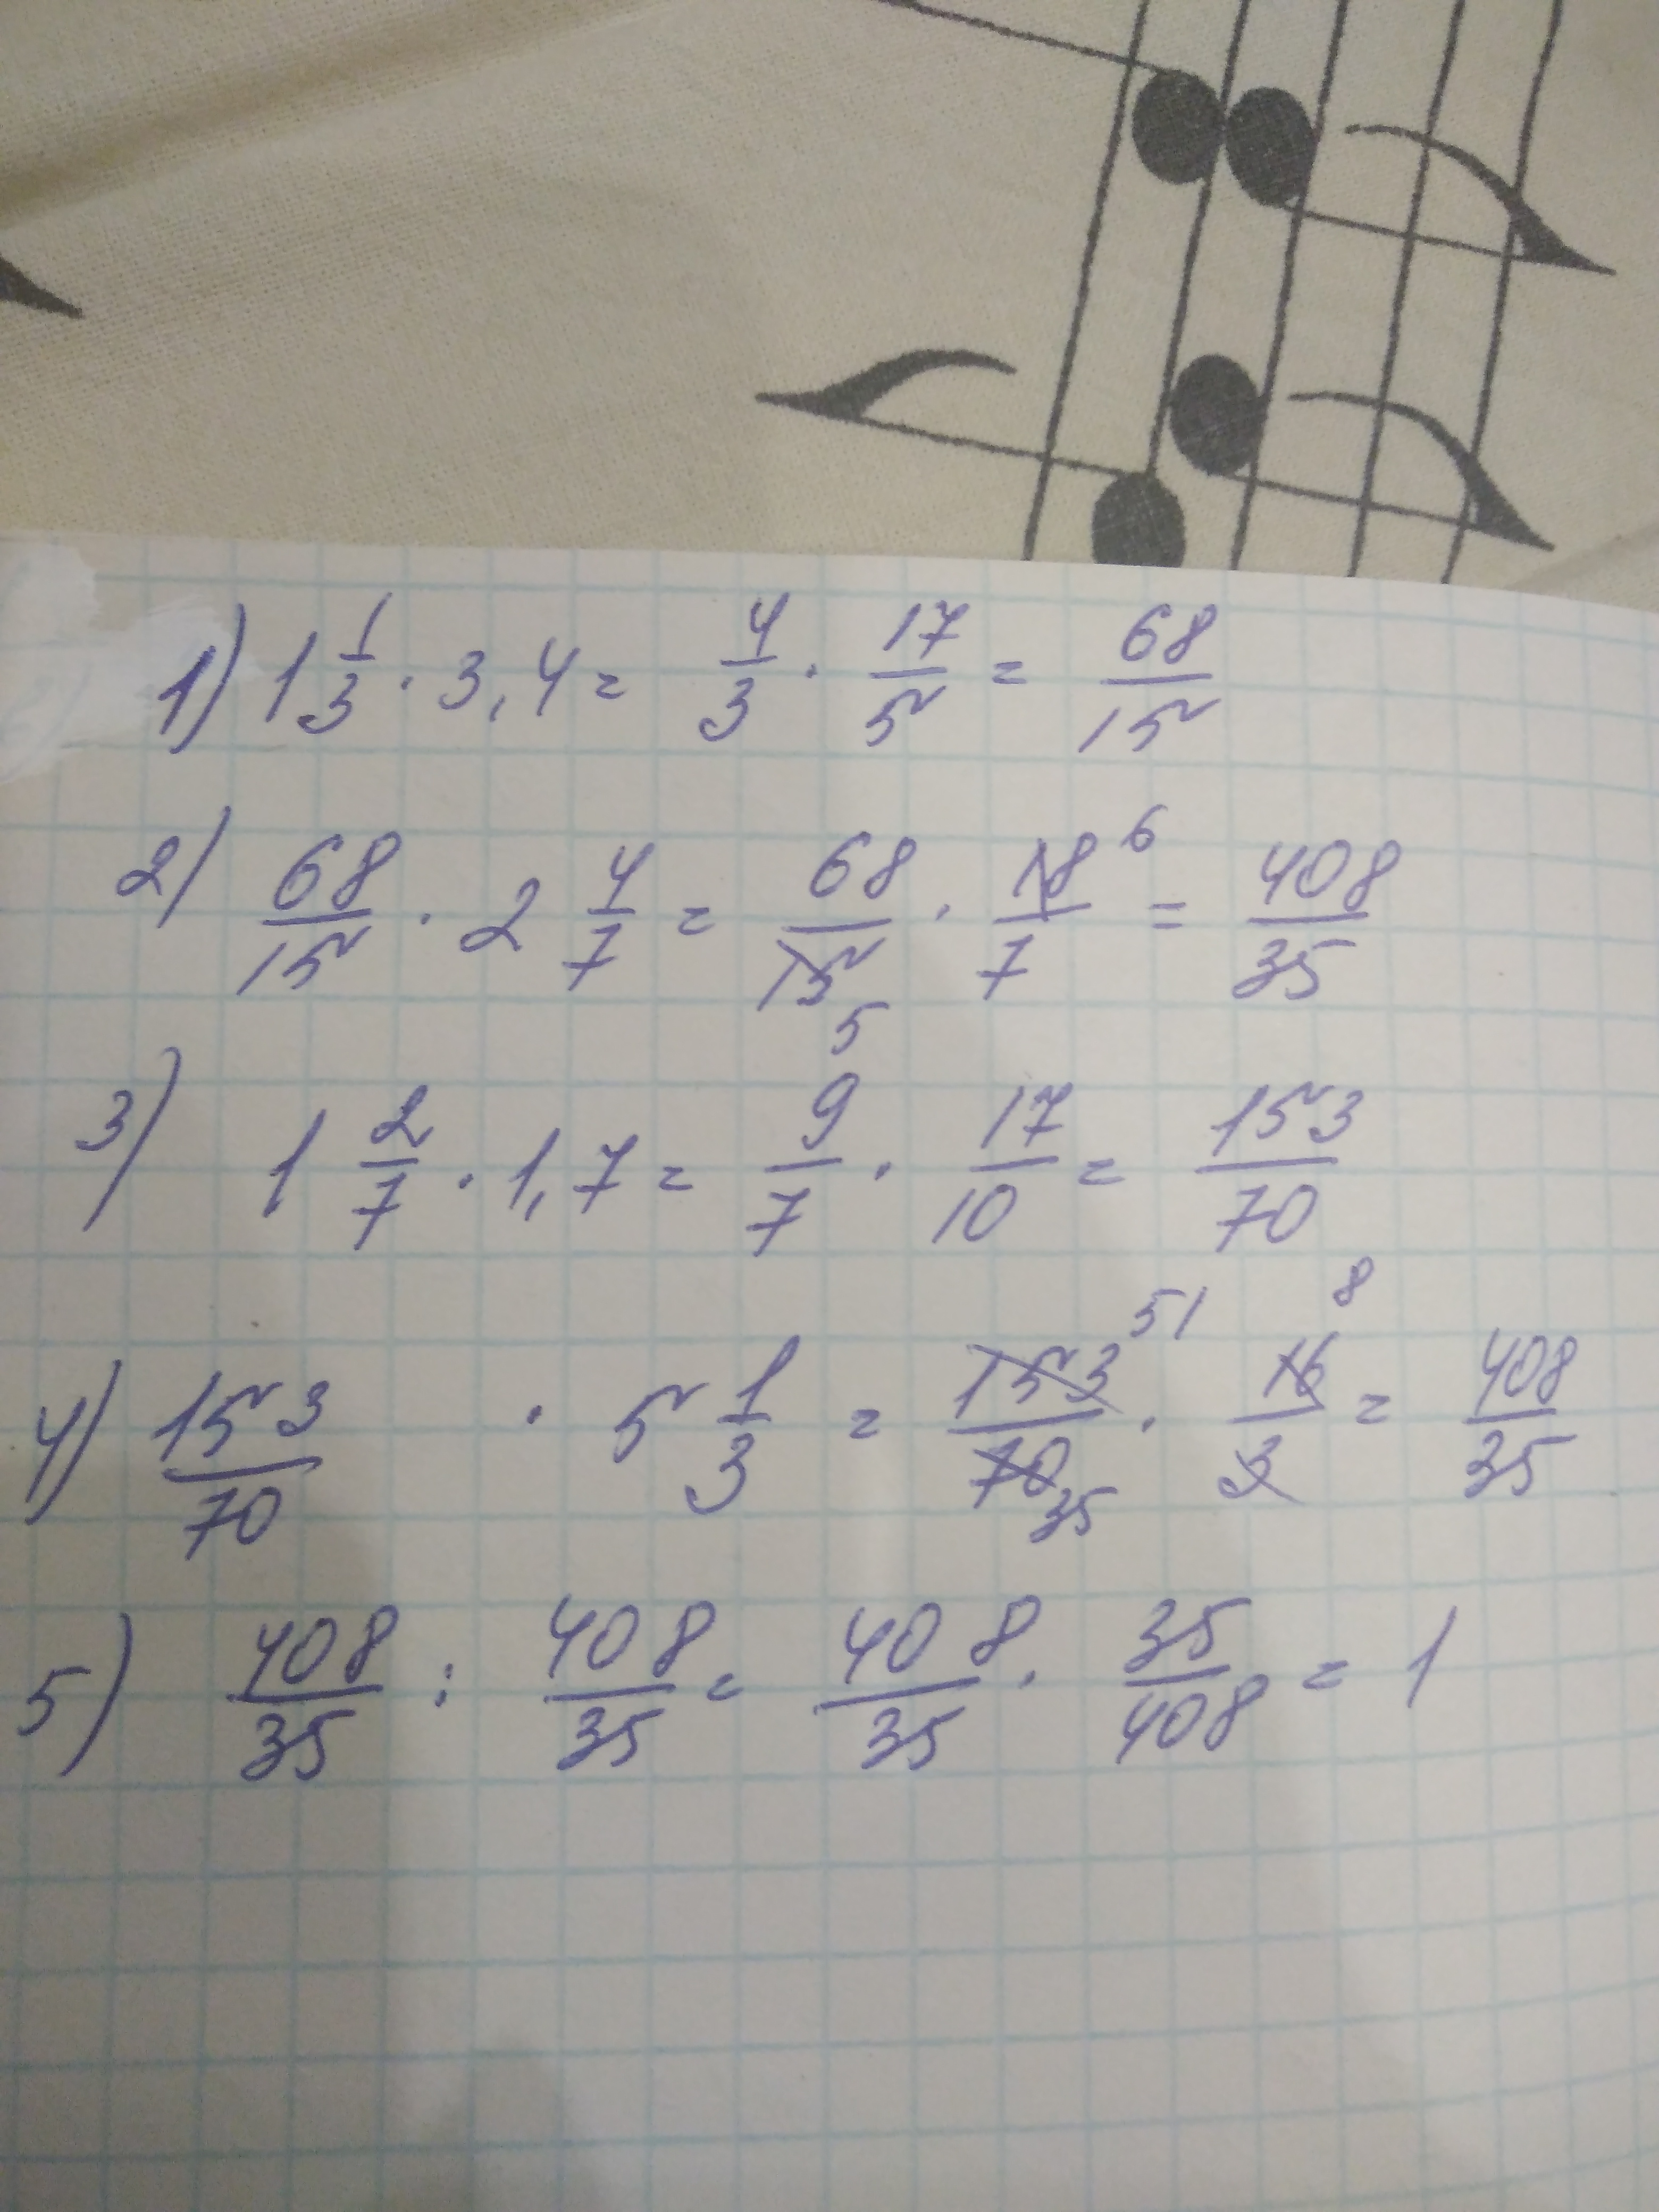 1) 1 1/3 · 3,4 = 4/3 · 17/5 = 68/15
2) 68/15 · 2 4/7 = 68/15 5 · 18/7 6 = 408/35
3) 1 2/7 · 1,7 = 9/7 · 17/10 = 153/70
4) 153/70 · 5 1/3 = 153 51/70 35 · 16 8/3 = 408/35
5) 408/35 : 408/35 = 408/35 · 35/408 = 1